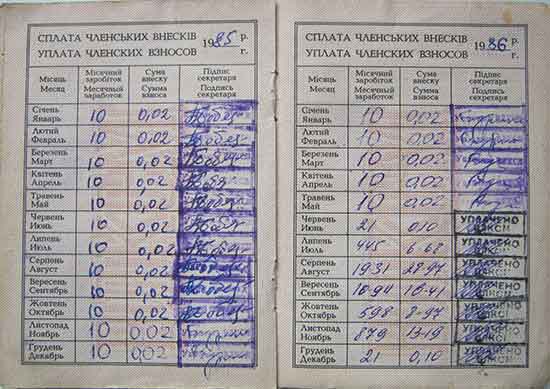 СПЛАТА ЧЛЕНСЬКИХ ВНЕСКІВ
УПЛАТА ЧЛЕНСКИХ ВЗНОСОВ
1985 р.
г.
Місяць
Месяц
Місячний
заробіток
Месячный
заработок
Сума
внеску
Сумма
взноса
Підпис
секретаря
Подпись
секретаря
Січень
Январь 10 0,02
Лютий
Февраль 10 0,02
Березень
Март 10 0,02
Квітень
Апрель 10 0,02
Травень
Май 10 0,02
Червень
Июнь 10 0,02
Липень
Июль 10 0,02
Серпень
Август 10 0,02
Вересень
Сентябрь 10 0,02
Жовтень
Октябрь 10 0,02
Листопад
Ноябрь 10 0,02
Грудень
Декабрь 10 0,02
СПЛАТА ЧЛЕНСЬКИХ ВНЕСКІВ
УПЛАТА ЧЛЕНСКИХ ВЗНОСОВ
1986 р.
г.
Місяць
Месяц
Місячний
заробіток
Месячный
заработок
Сума
внеску
Сумма
взноса
Підпис
секретаря
Подпись
секретаря
Січень
Январь 10 0,02
Лютий
Февраль 10 0,02
Березень
Март 10 0,02
Квітень
Апрель 10 0,02
Травень
Май 10 0,02
Червень
Июнь 21 0,10 УПЛАЧЕНО
Липень
Июль 445 6-68 УПЛАЧЕНО
ЛКСМ
Серпень
Август 1931 28-97 УПЛАЧЕНО
Вересень
Сентябрь 1094 16-41 УПЛАЧЕНО
Жовтень
Октябрь 598 8-97 УПЛАЧЕНО
Листопад
Ноябрь 879 13-19 УПЛАЧЕНО
Грудень
Декабрь 21 0,10 УПЛАЧЕНО